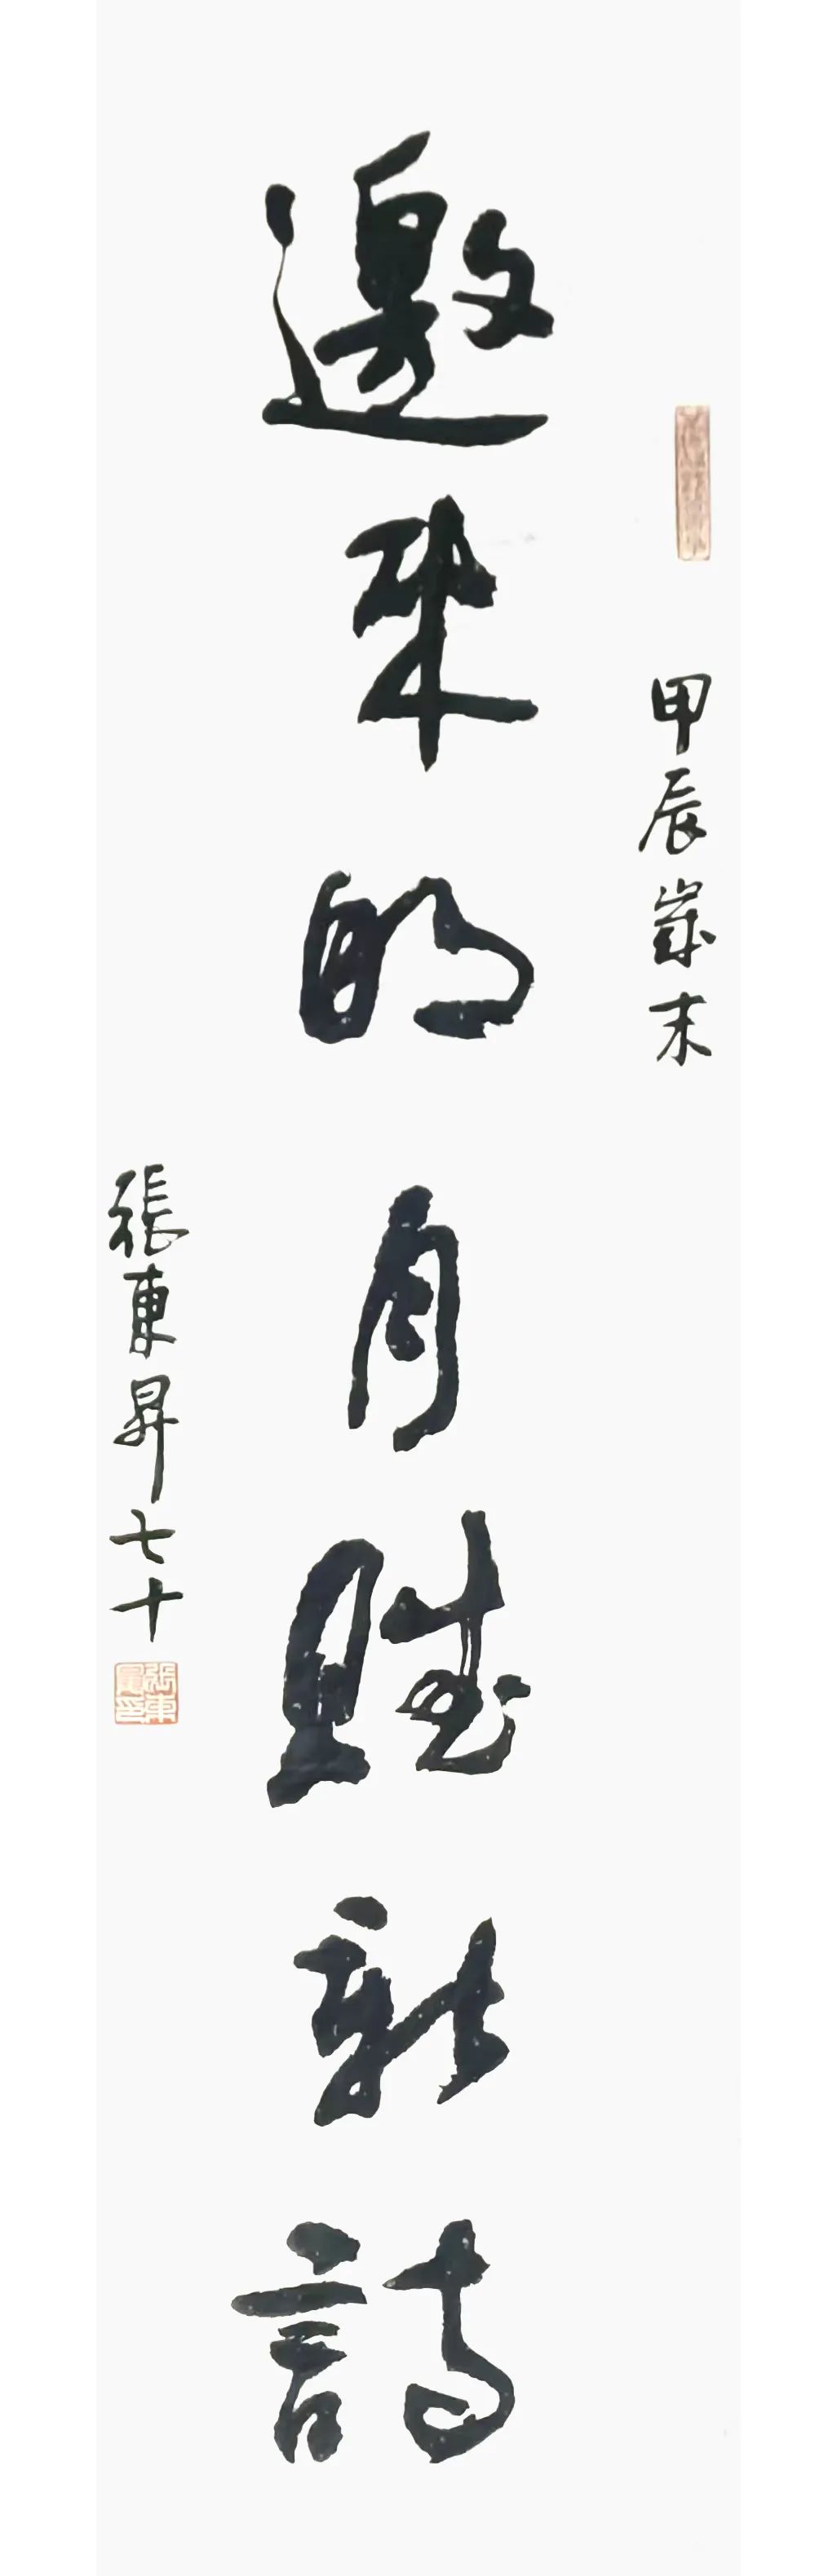 甲辰歲末
邀來明月賦新詩
張東昇七十
張東昇印